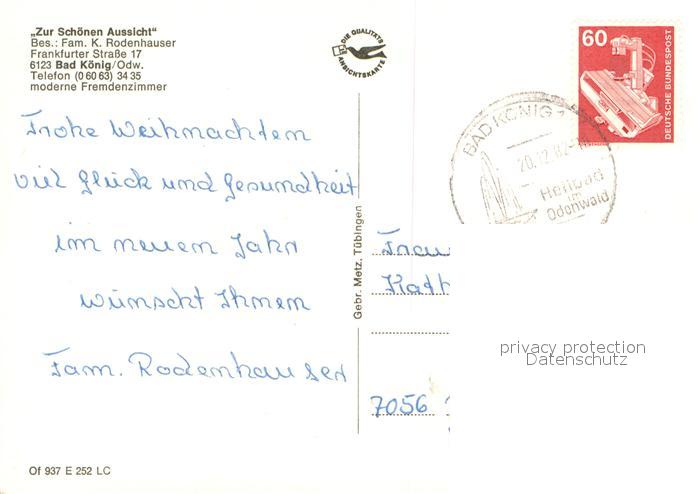 „Zur Schönen Aussicht"
Bes.: Fam. K. Rodenhauser
Frankfurter Straße 17
6123 Bad König/Odw.
Telefon (0 60 63) 34 35
moderne Fremdenzimmer
DIE QUALITÄTS
ANSICHTSKARTE
60
DEUTSCHE BUNDESPOST
BAD KÖNIG
20.12.82
Heilbad
im
Odenwald
Frohe Weihnachten
viel Glück und Gesundheit
im neuen Jahr
wünscht Ihnen
Fam. Rodenhauser
Gebr. Metz, Tübingen
Frau
Kath
7056
privacy protection
Datenschutz
Of 937 E 252 LC